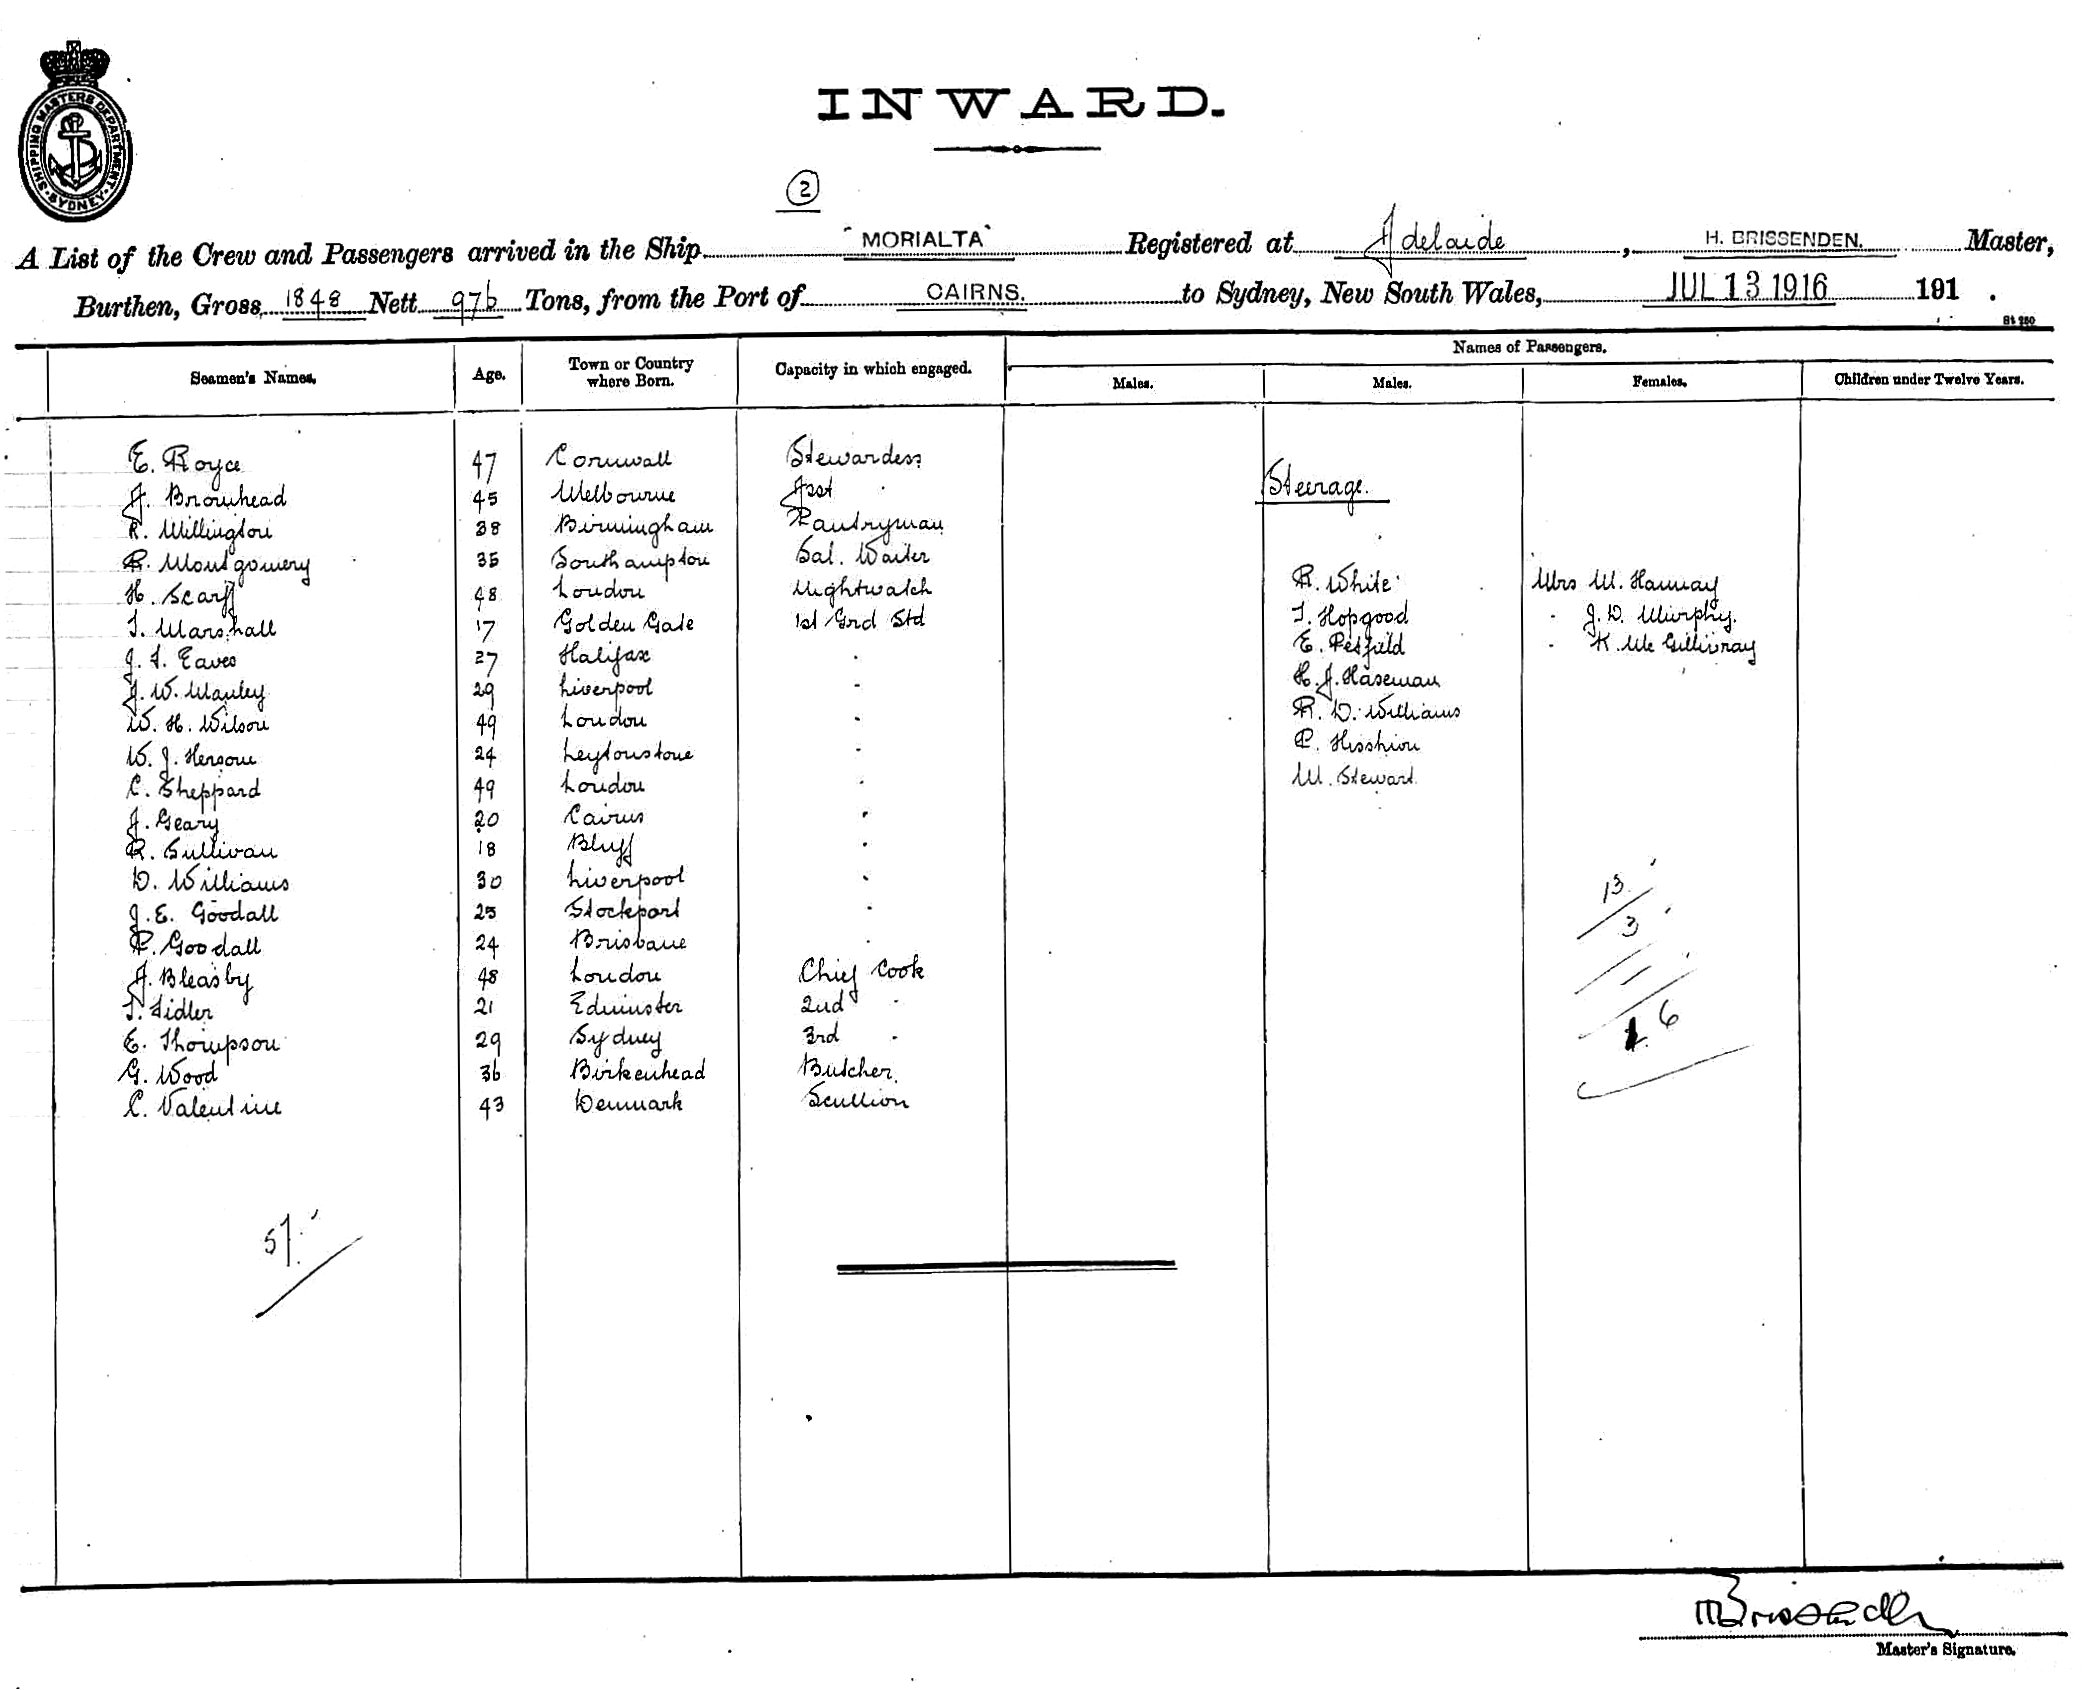 SHIPPING MASTERS DEPARTMENT · SYDNEY ·
INWARD.
2
A List of the Crew and Passengers arrived in the Ship "MORIALTA" Registered at Adelaide, H. BRISSENDEN. Master,
Burthen, Gross 1848 Nett 976 Tons, from the Port of CAIRNS. to Sydney, New South Wales, JUL 13 1916 191 .
St 250
Names of Passengers.
Seamen's Names. Age. Town or Country where Born. Capacity in which engaged. Males. Males. Females. Children under Twelve Years.
E. Royce 47 Cornwall Stewardess
Steerage.
A. Browhead 45 Melbourne Asst "
R. Willington 38 Birmingham Pantryman
R. Montgomery 35 Southampton Sal. Waiter
H. Scarff 48 London Nightwatch R. White Mrs M. Hannay
T. Marshall 17 Golden Gate 1st Grd Std T. Hopgood " J. D. Murphy.
J. T. Eaves 27 Halifax " E. Petfield " K. Mc Gillivray
J. W. Manley 29 Liverpool " H. J. Haseman
W. H. Wilson 49 London " R. D. Williams
W. J. Hersom 24 Leytonstone " P. Hisshion
C. Sheppard 49 London " W. Stewart.
J. Geary 20 Cairns "
R. Sullivan 18 Bluff "
D. Williams 30 Liverpool " 13
J. E. Goodall 25 Stockport " 3
P. Goodall 24 Brisbane "
A. Bleasby 48 London Chief Cook
T. Fidler 21 Edminster 2nd " 6
E. Thompson 29 Sydney 3rd "
G. Wood 36 Birkenhead Butcher.
C. Valentine 43 Denmark Scullion
57
H Brissenden
Master's Signature.